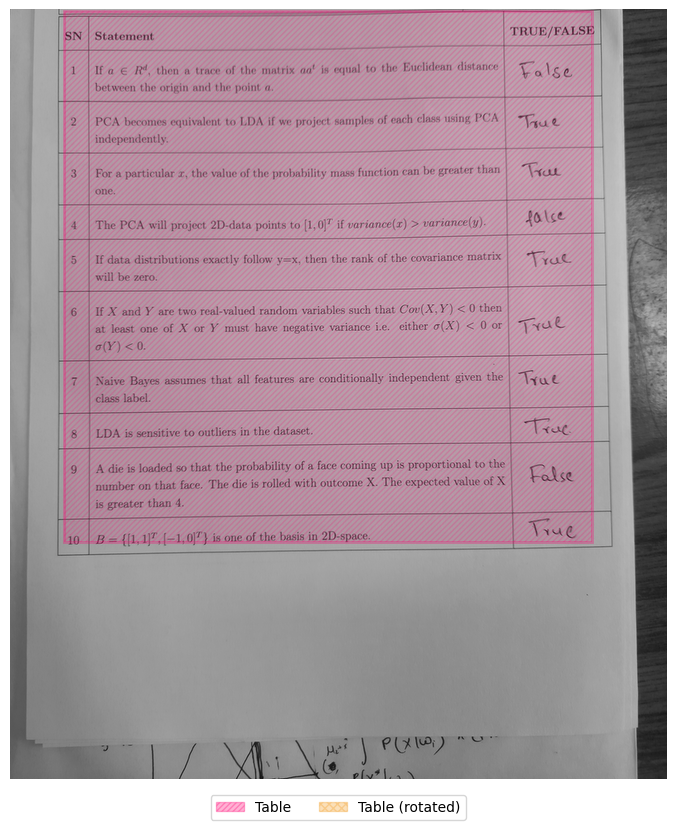 SN Statement TRUE/FALSE
1 If a ∈ R^d, then a trace of the matrix aa^t is equal to the Euclidean distance False
between the origin and the point a.
2 PCA becomes equivalent to LDA if we project samples of each class using PCA True
independently.
3 For a particular x, the value of the probability mass function can be greater than True
one.
4 The PCA will project 2D-data points to [1, 0]^T if variance(x) > variance(y). false
5 If data distributions exactly follow y=x, then the rank of the covariance matrix True
will be zero.
6 If X and Y are two real-valued random variables such that Cov(X, Y) < 0 then
at least one of X or Y must have negative variance i.e. either σ(X) < 0 or True
σ(Y) < 0.
7 Naive Bayes assumes that all features are conditionally independent given the True
class label.
8 LDA is sensitive to outliers in the dataset. True
9 A die is loaded so that the probability of a face coming up is proportional to the
number on that face. The die is rolled with outcome X. The expected value of X False
is greater than 4.
10 B = {[1, 1]^T, [−1, 0]^T} is one of the basis in 2D-space. True
Table Table (rotated)